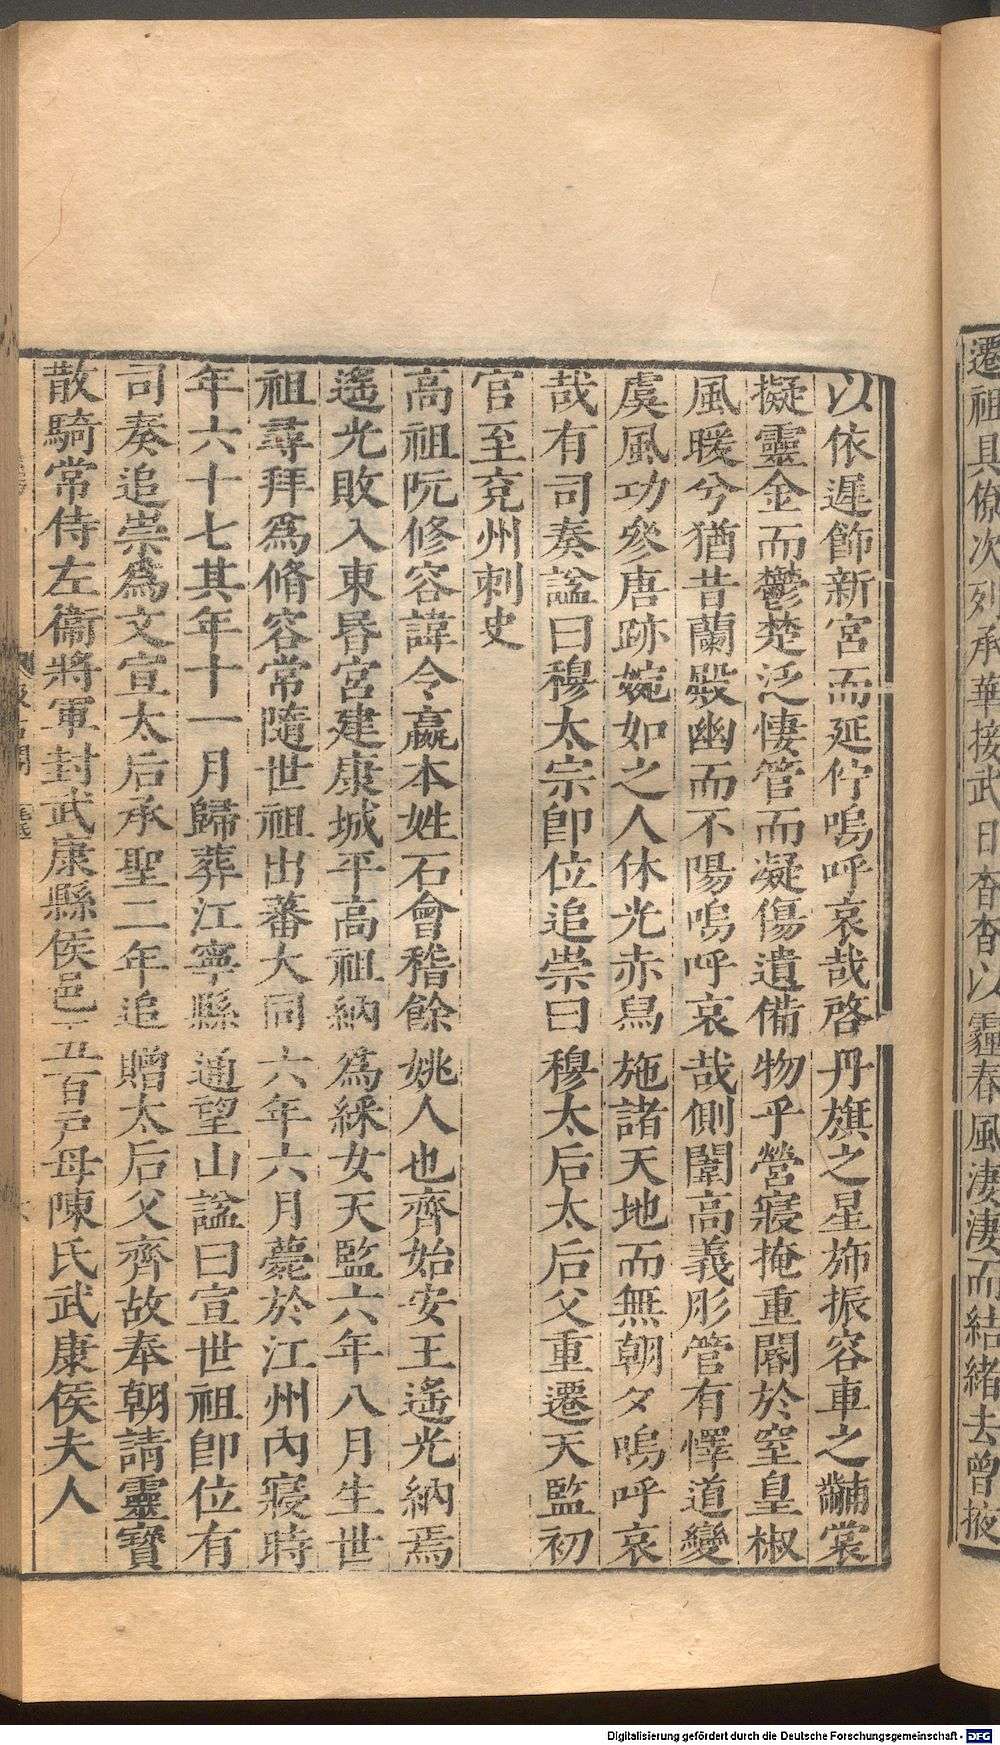 遷祖具僚次列承華接武日杳杳以霾春風淒淒而結緒去曾掖
以依遲飾新宮而延佇嗚呼哀哉啓丹旗之星斾振容車之黼裳
擬靈金而鬱楚泛悽管而凝傷遺備物乎營寢掩重閽於窒皇椒
風暖兮猶昔蘭殿幽而不陽嗚呼哀哉側闈高義彤管有懌道變
虞風功參唐跡婉如之人休光赤舃施諸天地而無朝夕嗚呼哀
哉有司奏諡曰穆太宗卽位追崇曰穆太后太后父重遷天監初
官至兗州刺史
高祖阮修容諱令嬴本姓石會稽餘姚人也齊始安王遙光納焉
遙光敗入東昬宮建康城平高祖納為綵女天監六年八月生世
祖尋拜爲脩容常隨世祖出蕃大同六年六月薨於江州內寢時
年六十七其年十一月歸葬江寧縣通望山諡曰宣世祖卽位有
司奏追崇爲文宣太后承聖二年追贈太后父齊故奉朝請靈寶
散騎常侍左衞將軍封武康縣侯邑五百戶母陳氏武康侯夫人
Digitalisierung gefördert durch die Deutsche Forschungsgemeinschaft - DFG